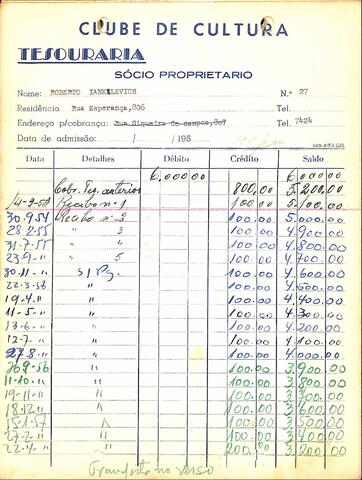 CLUBE DE CULTURA
TESOURARIA
SÓCIO PROPRIETARIO
Nome: ROBERTO IANKILEVICH N.º 27
Residência Rua Esperança,806 Tel.
Endereço p/cobrança: Rua Siqueira de campos,807 Tel. 7424
Data de admissão: / /195
Data Detalhes Débito Crédito Saldo
6.000.00 6.000.00
Cobr. Pag. anterios 800,00 5.200.00
14-9-53 Recibo nº 1 100.00 5.100.00
30.9.54 Recibo nº 2 100.00 5.000.00
28.2.55 " 3 100.00 4.900.00
31.7.55 " 4 100.00 4.800.00
23.9-" " 5 100.00 4.700.00
30.11-" 100.00 4.600.00
22.3.56 " 100.00 4.500.00
19.4-" " 100.00 4.400.00
11-5-" " 100.00 4.300.00
13-6-" " 100.00 4.200.00
12-7-" " 100.00 4.100.00
27.8-" " 100.00 4.000.00
26.9-56 " 100.00 3.900.00
11-10-" " 100.00 3.800.00
19-11-" " 100.00 3.700.00
18.12/" " 100.00 3.600.00
15.1.57 " 100.00 3.500.00
27-2-" " 100.00 3.400.00
22.4-" " 200.00 3.200.00
Transporte no verso